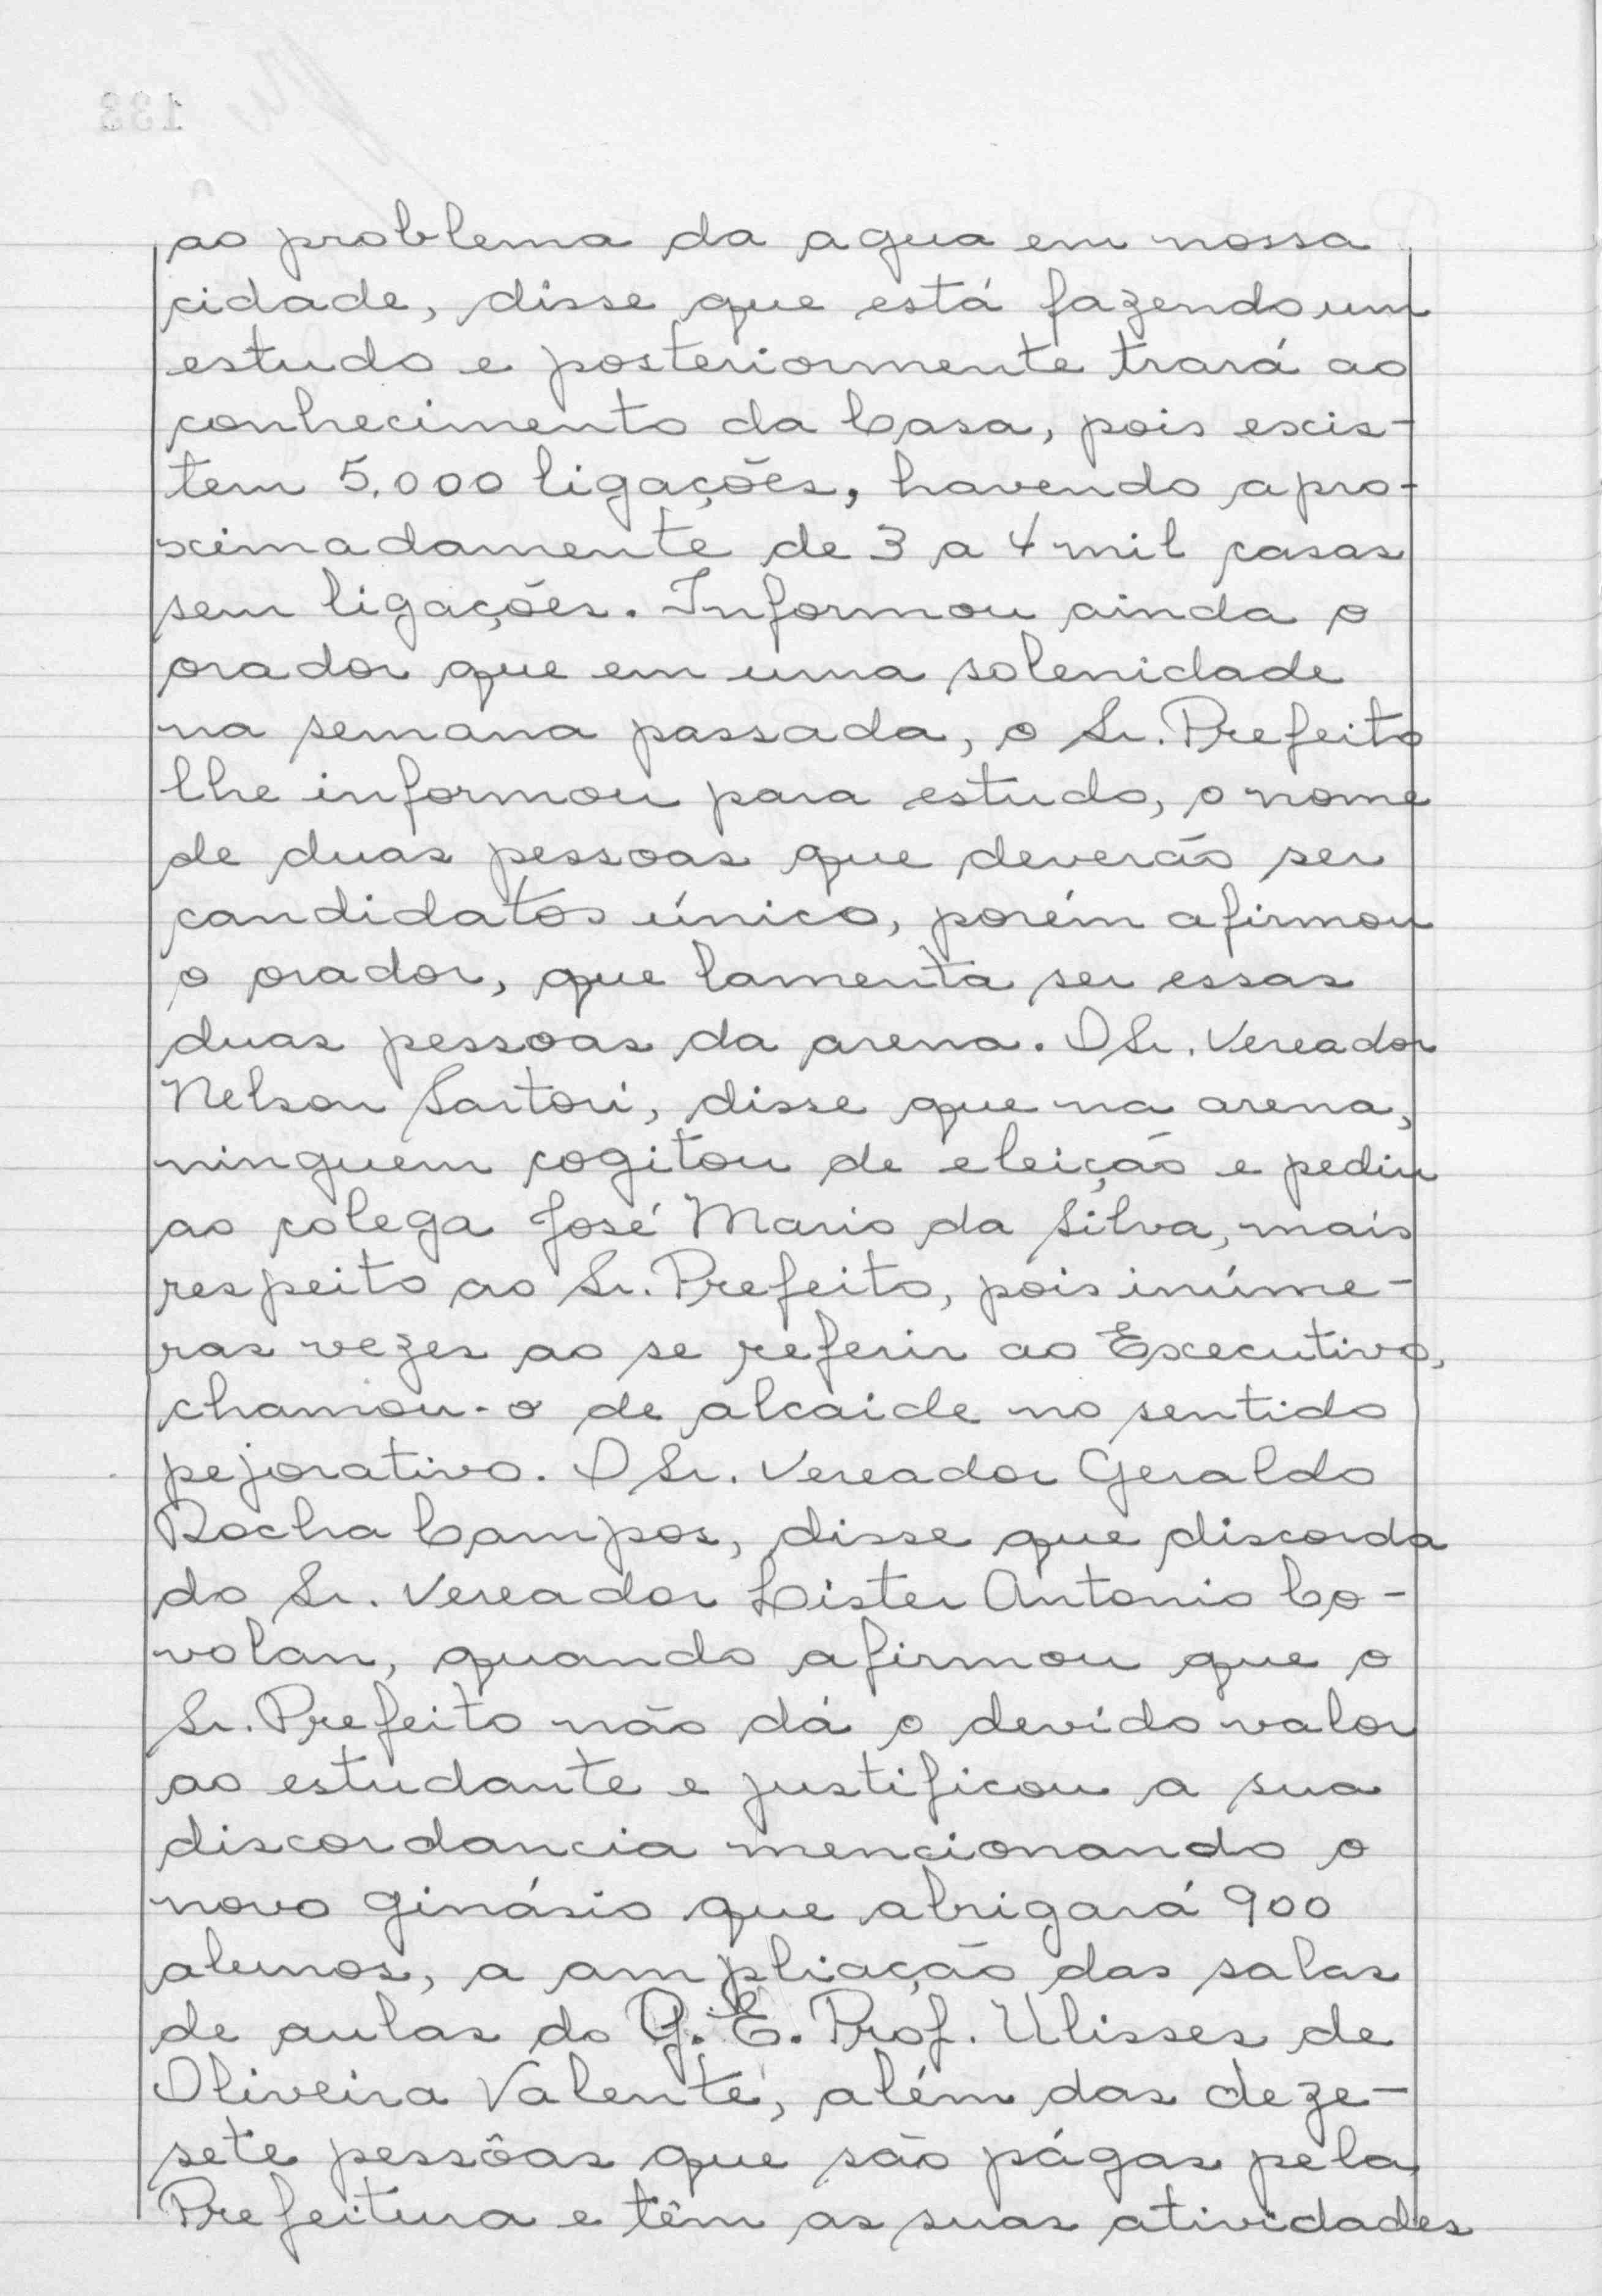 ao problema da agua em nossa
cidade, disse que está fazendo um
estudo e posteriormente trará ao
conhecimento da Casa, pois exis-
tem 5.000 ligações, havendo apro-
ximadamente de 3 a 4 mil casas
sem ligações. Informou ainda o
orador que em uma solenidade
na semana passada, o Sr. Prefeito
lhe informou para estudo, o nome
de duas pessoas que deverão ser
candidatos único, porém afirmou
o orador, que lamenta ser essas
duas pessoas da arena. O Sr. Vereador
Nelson Sartori, disse que na arena,
ninguem cogitou de eleição e pediu
ao colega José Mario da Silva, mais
respeito ao Sr. Prefeito, pois inúme-
ras vezes ao se referir ao Executivo,
chamou-o de alcaide no sentido
pejorativo. O Sr. Vereador Geraldo
Rocha Campos, disse que discorda
do Sr. Vereador Lister Antonio Co-
volan, quando afirmou que o
Sr. Prefeito não dá o devido valor
ao estudante e justificou a sua
discordancia mencionando o
novo ginásio que abrigará 900
alunos, a ampliação das salas
de aulas do G.E. Prof. Ulisses de
Oliveira Valente, além das deze-
sete pessôas que são págas pela
Prefeitura e têm as suas atividades